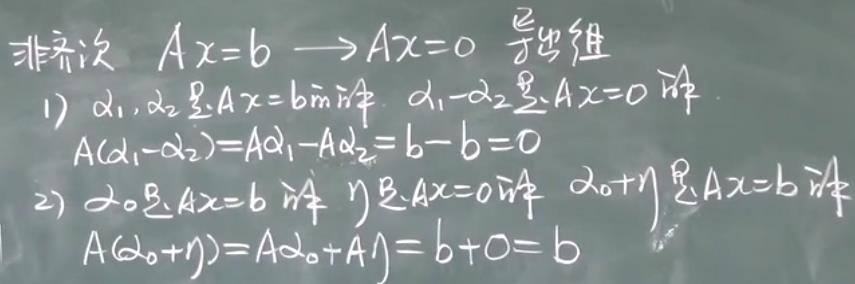 非齐次 Ax=b ⟶ Ax=0 导出组
1) α₁,α₂是Ax=b的解 α₁-α₂是Ax=0解.
A(α₁-α₂)=Aα₁-Aα₂=b-b=0
2) α₀是Ax=b解 η是Ax=0解 α₀+η是Ax=b解
A(α₀+η)=Aα₀+Aη=b+0=b